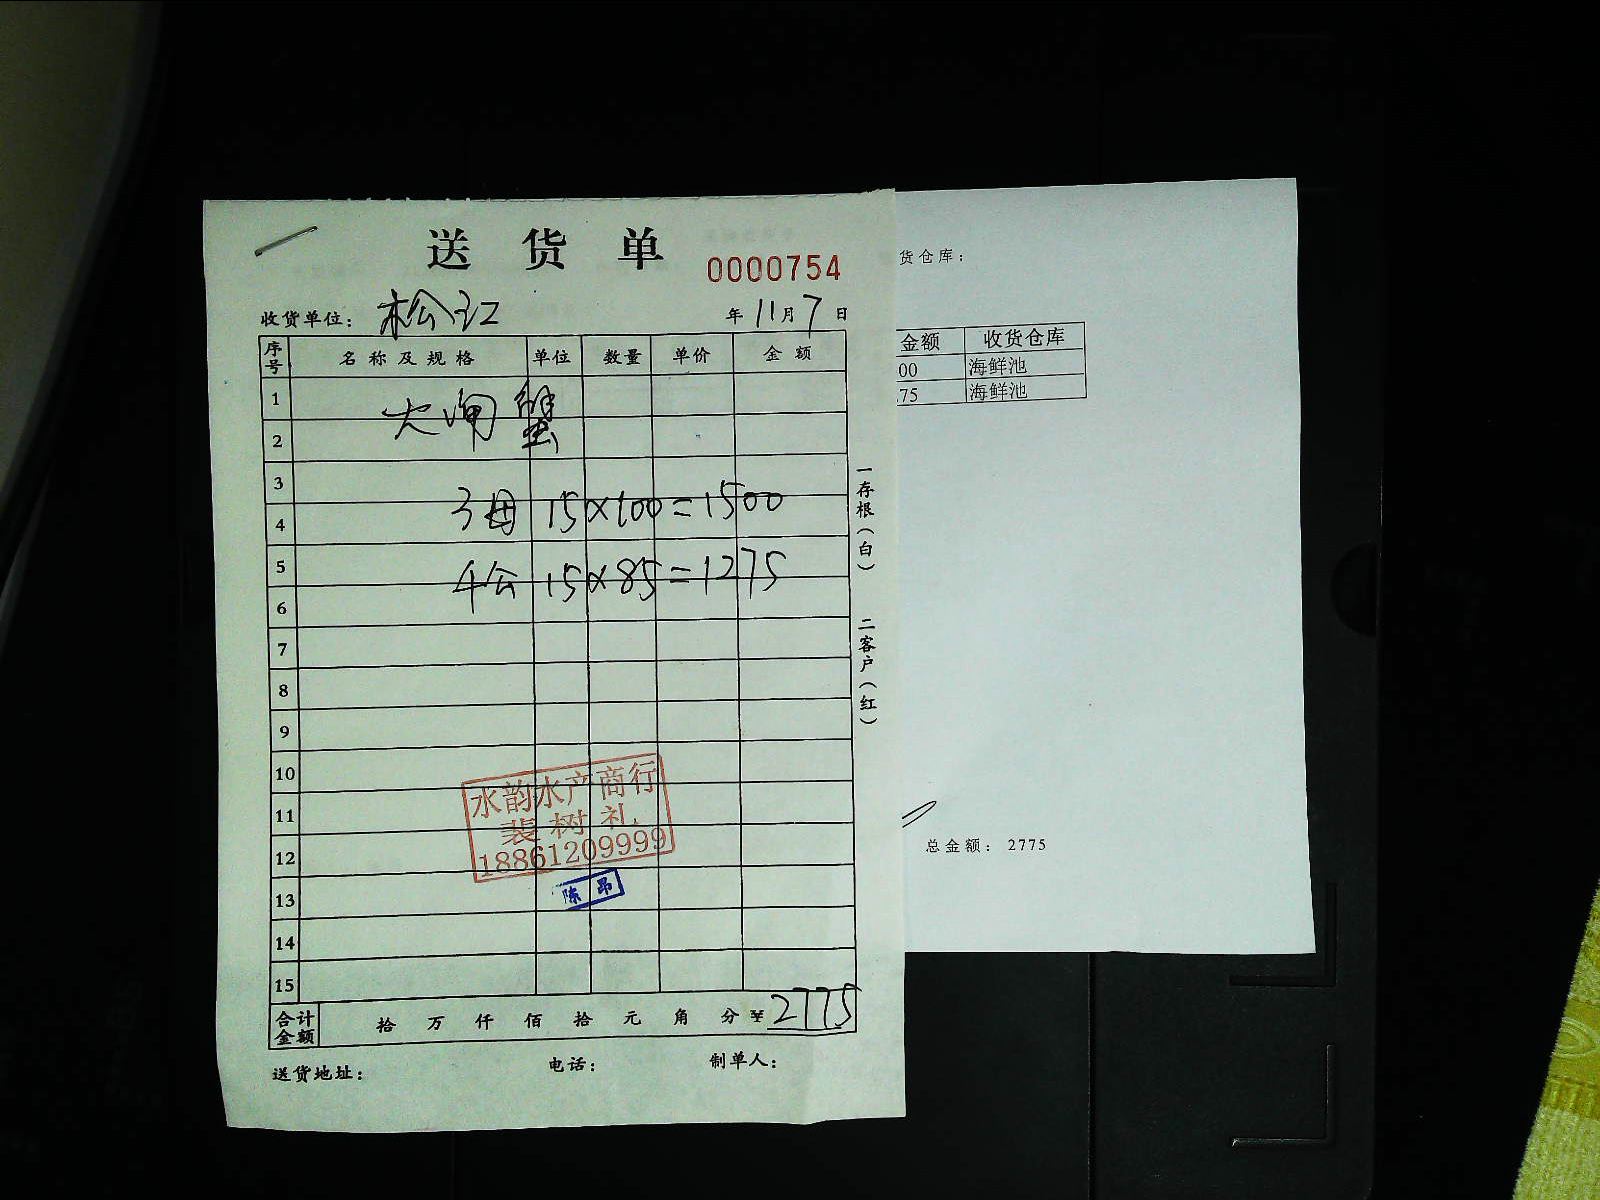 送货单
0000754
收货单位： 松江 年 11 月 7 日
序号 名称及规格 单位 数量 单价 金额
1
大闸蟹
2
3
3母 15×100=1500
4
5
4公 15×85=1275
6
7
8
9
10
11
12
13
14
15
水韵水产商行
裴树礼
18861209999
陈昂
合计金额 拾 万 仟 佰 拾 元 角 分 ¥ 2775
送货地址： 电话： 制单人：
一存根（白）
二客户（红）
货仓库：
金额 收货仓库
00 海鲜池
75 海鲜池
总金额： 2775